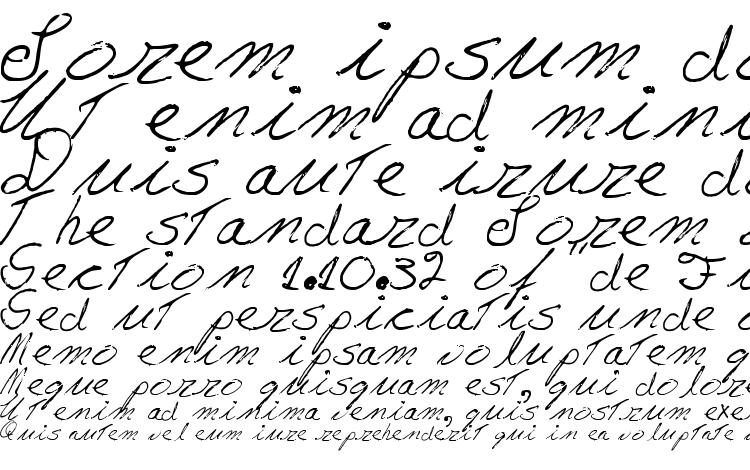 Lorem ipsum do
Ut enim ad mini
Duis aute irure do
The standard Lorem
Section 1.10.32 of "de Fi
Sed ut perspiciatis unde
Nemo enim ipsam voluptatem q
Neque porro quisquam est, qui dolore
Ut enim ad minima veniam, quis nostrum exe
Quis autem vel eum iure reprehenderit qui in ea voluptate